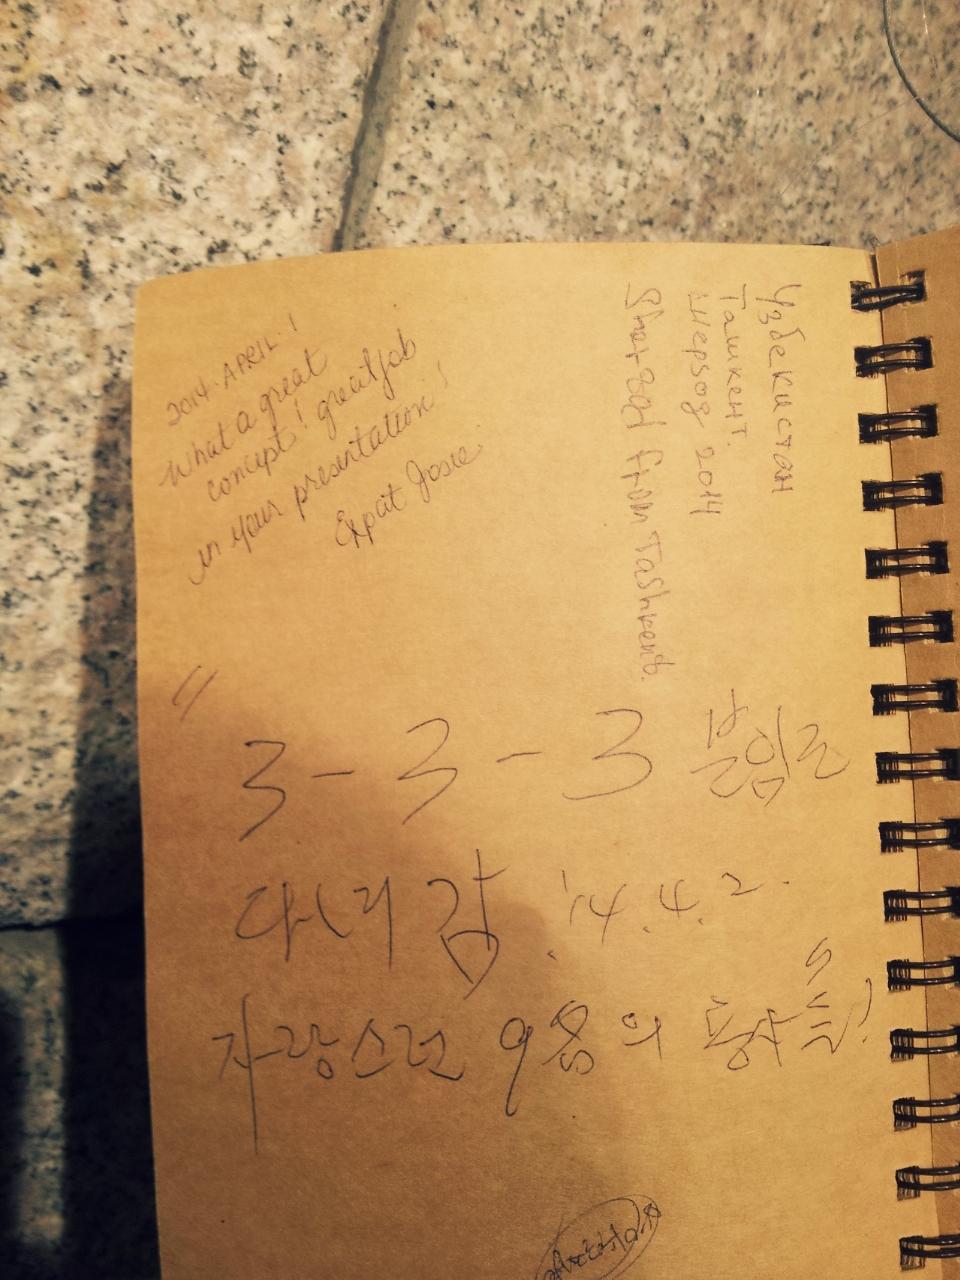 2014. APRIL!
What a great
concept! great job
in your presentation!
Expat Josie
Узбекистан
Ташкент.
Шерзод 2014
Sherzod from Tashkent.
"3-3-3
다녀감 '14.4.2.
자랑스런 9명의